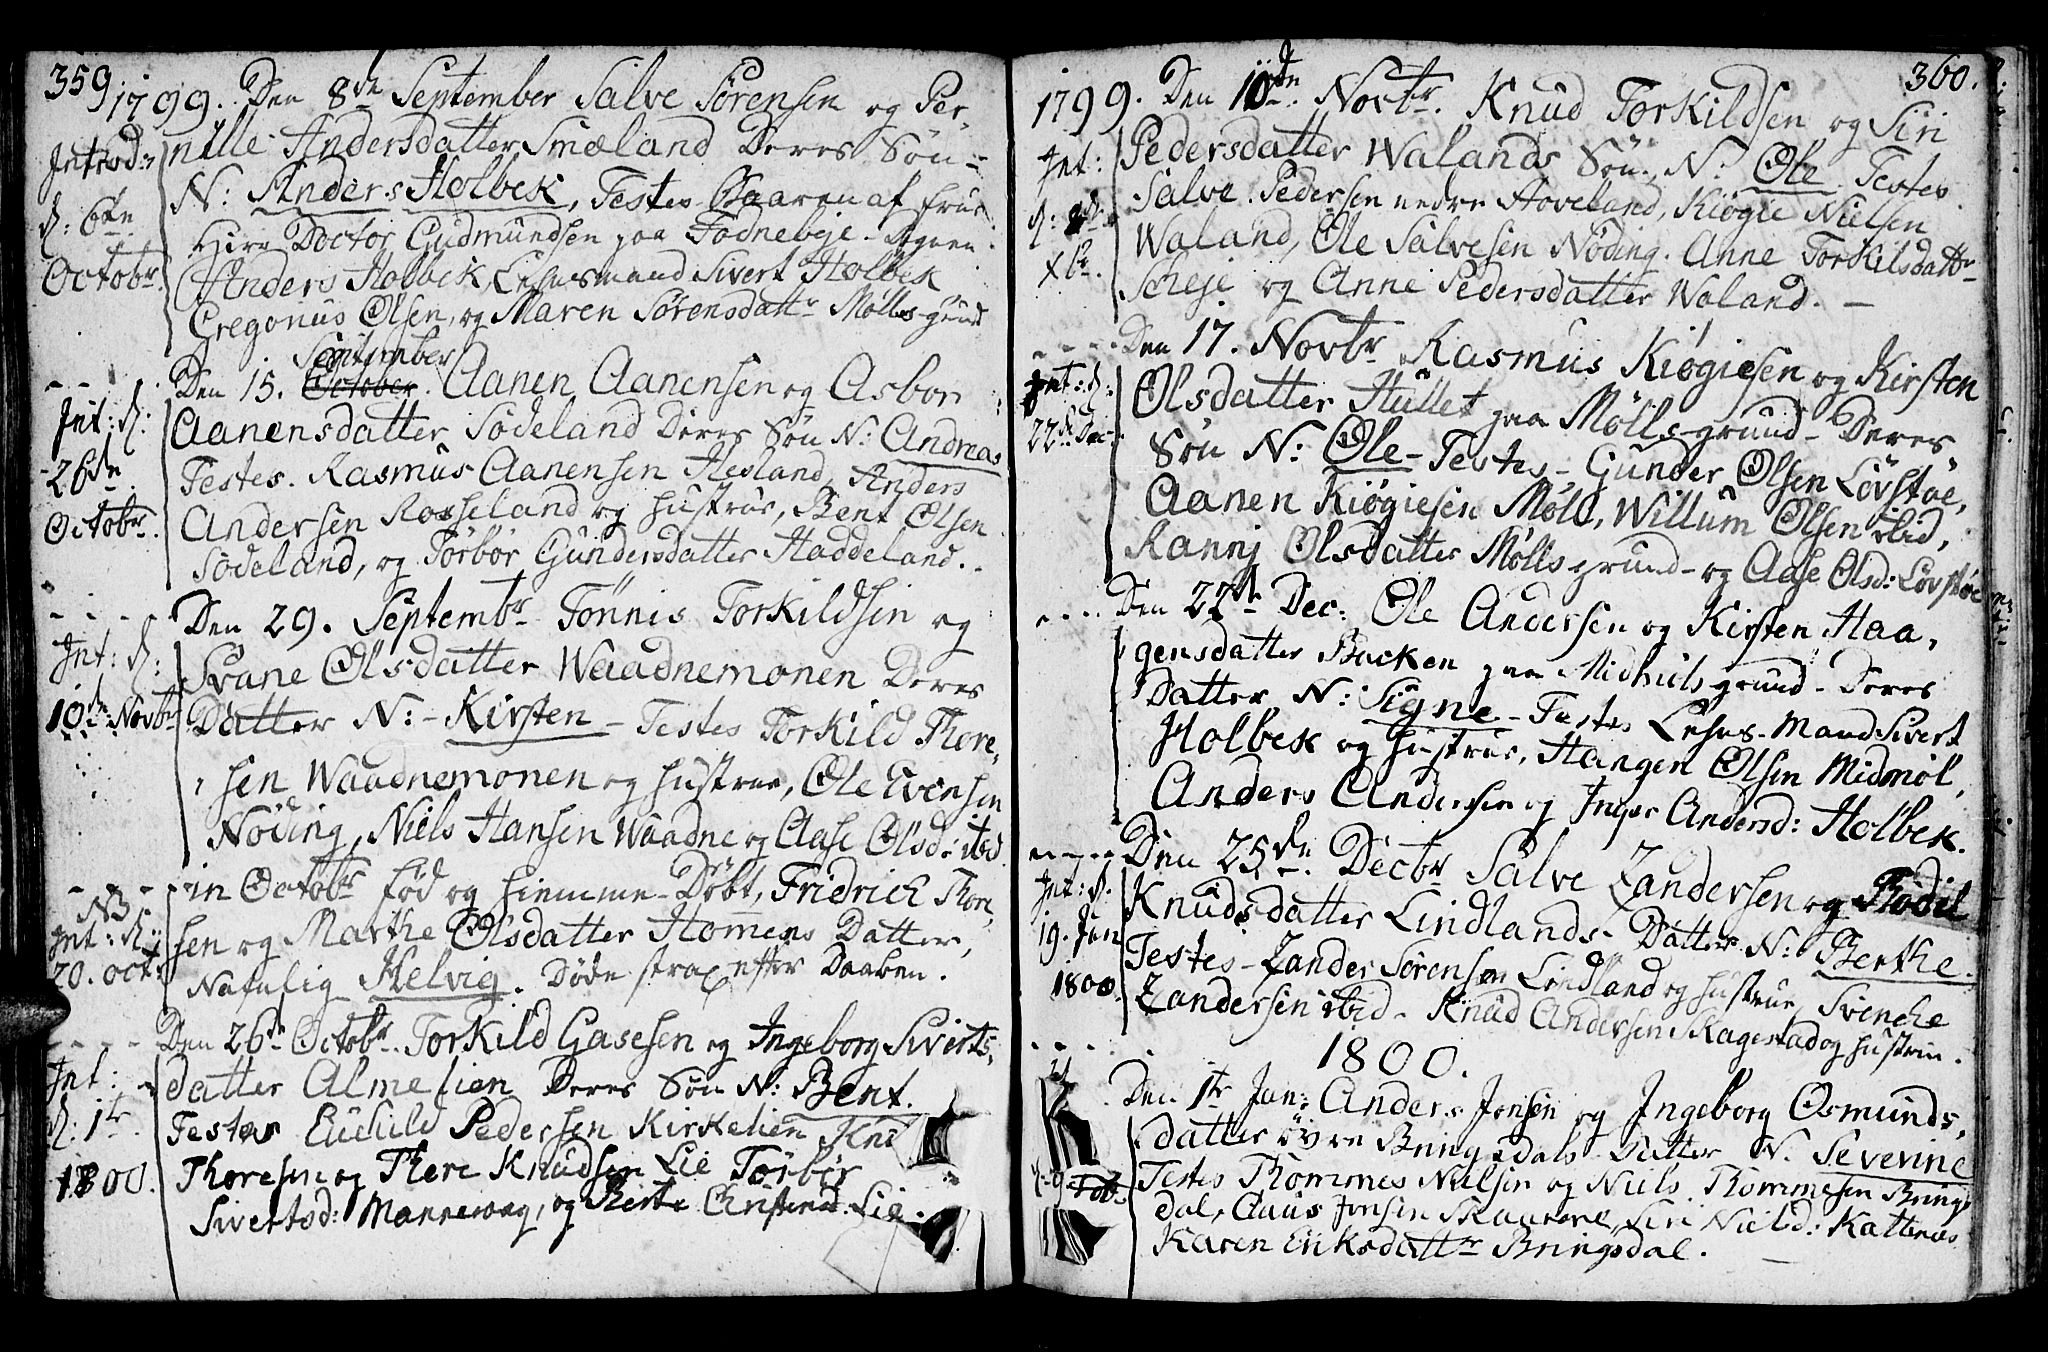 359
1799. Den 8de September Salve Sörensen og Per-
nille Andersdatter Smæland Deres Sön-
N: Anders Holbek, Testes af Frue
Herr Doctor Gudmundsen paa Fodnebeje
Anders Holbek Lehnsmand Sivert Holbek
Gregonius Olsen, og Maren Sörensdattr Molls-grund
Introd:
d: 6te
Octobr.
September
Den 15. October. Aanen Aanensen og Asbor
Aanensdatter Södeland Deres Sön N: Andreas
Testes. Rasmus Aanensen Hesland, Anders
Andersen Rosseland og Hustrue, Bent Olsen
Södeland, og Törbor Gundersdatter Haddeland.
Int: d:
26de
Octobr.
Den 29. Septembr Tönnis Torkildsen og
Svane Olsdatter Waadnemonen Deres
Datter N:- Kirsten - Testes Torkild Thore,
sen Waadnemonen og Hustrue, Ole Evensen
Nöding, Niels Hansen Waadne og Aase Olsd: ibid
Int: d:
10de Novbr
in Octobr Fød og Hiemme-Döbt, Fridrich Thore,
sen og Marthe Olsdatter Homens Datter,
Nafnlig Helvig. Döde strax efter Daaben.
NB
Int: d:
20. oct:
Den 26de Octobr. Torkild Gasesen og Ingeborg Siverts,
datter Almelien Deres Sön N: Bent.
Testes Euchild Pedersen Kirkelien
Thoresen og There Knudsen Lie Törbör
Sivertsd: Mannevaag, og Berte Christensd. Lie.
Int:
d: 1te
1800.
360.
1799. Den 10de Novbr. Knud Torkildsen og Siri
Pedersdatter Walands Sön. N: Ole Testes
Salve Pedersen nedre Hoveland, Kiögie Nielsen
Waland, Ole Salvesen Nöding. Anne Torkilsdattr
Scheje og Anne Pedersdatter Waland. —
Int:
d: 8de
Xbr.
Den 17. Novbr Rasmus Kiögiesen og Kirsten
Olsdatter Hullet paa Mölls-grund - Deres
Sön N: Ole - Testes - Gunder Olsen Lövstöe,
Aanen Kiögiesen Möll, Willum Olsen ibid,
Rannj Olsdatter Mölls grund - og Aase Olsd: Lövstöe
Int: d:
22de Dec
Den 22de Dec: Ole Andersen og Kirsten Haa,
gensdatter Backen paa Midhuls grund - Deres
Datter N: Signe - Testes Lehns-Mand Sivert
Holbek og Hustrue, Haagen Olsen Midmöl,
Anders Andersen og Inger Andersd: Holbek.
Den 25de Decbr Salve Zandersen og Bodil
Knudsdatter Lindlands Datter N: Berthe.
Testes - Zander Sörensen Lindland og Hustrue Svenche
Zandersen ibid - Knud Andersen Ragestad og Hustrue.
Int: d.
19. Jan
1800.
1800.
Den 1te Jan: Anders Jonsen og Ingeborg Osmunds,
datter övre Bringsdals Datter N. Severine
Testes Thommes Nielsen og Niels Thommesen Brings
dal, Aaus Jonsen Skaarere, Siri Nielsd: Kattenæs
Karen Eriksdattr Bringsdal.